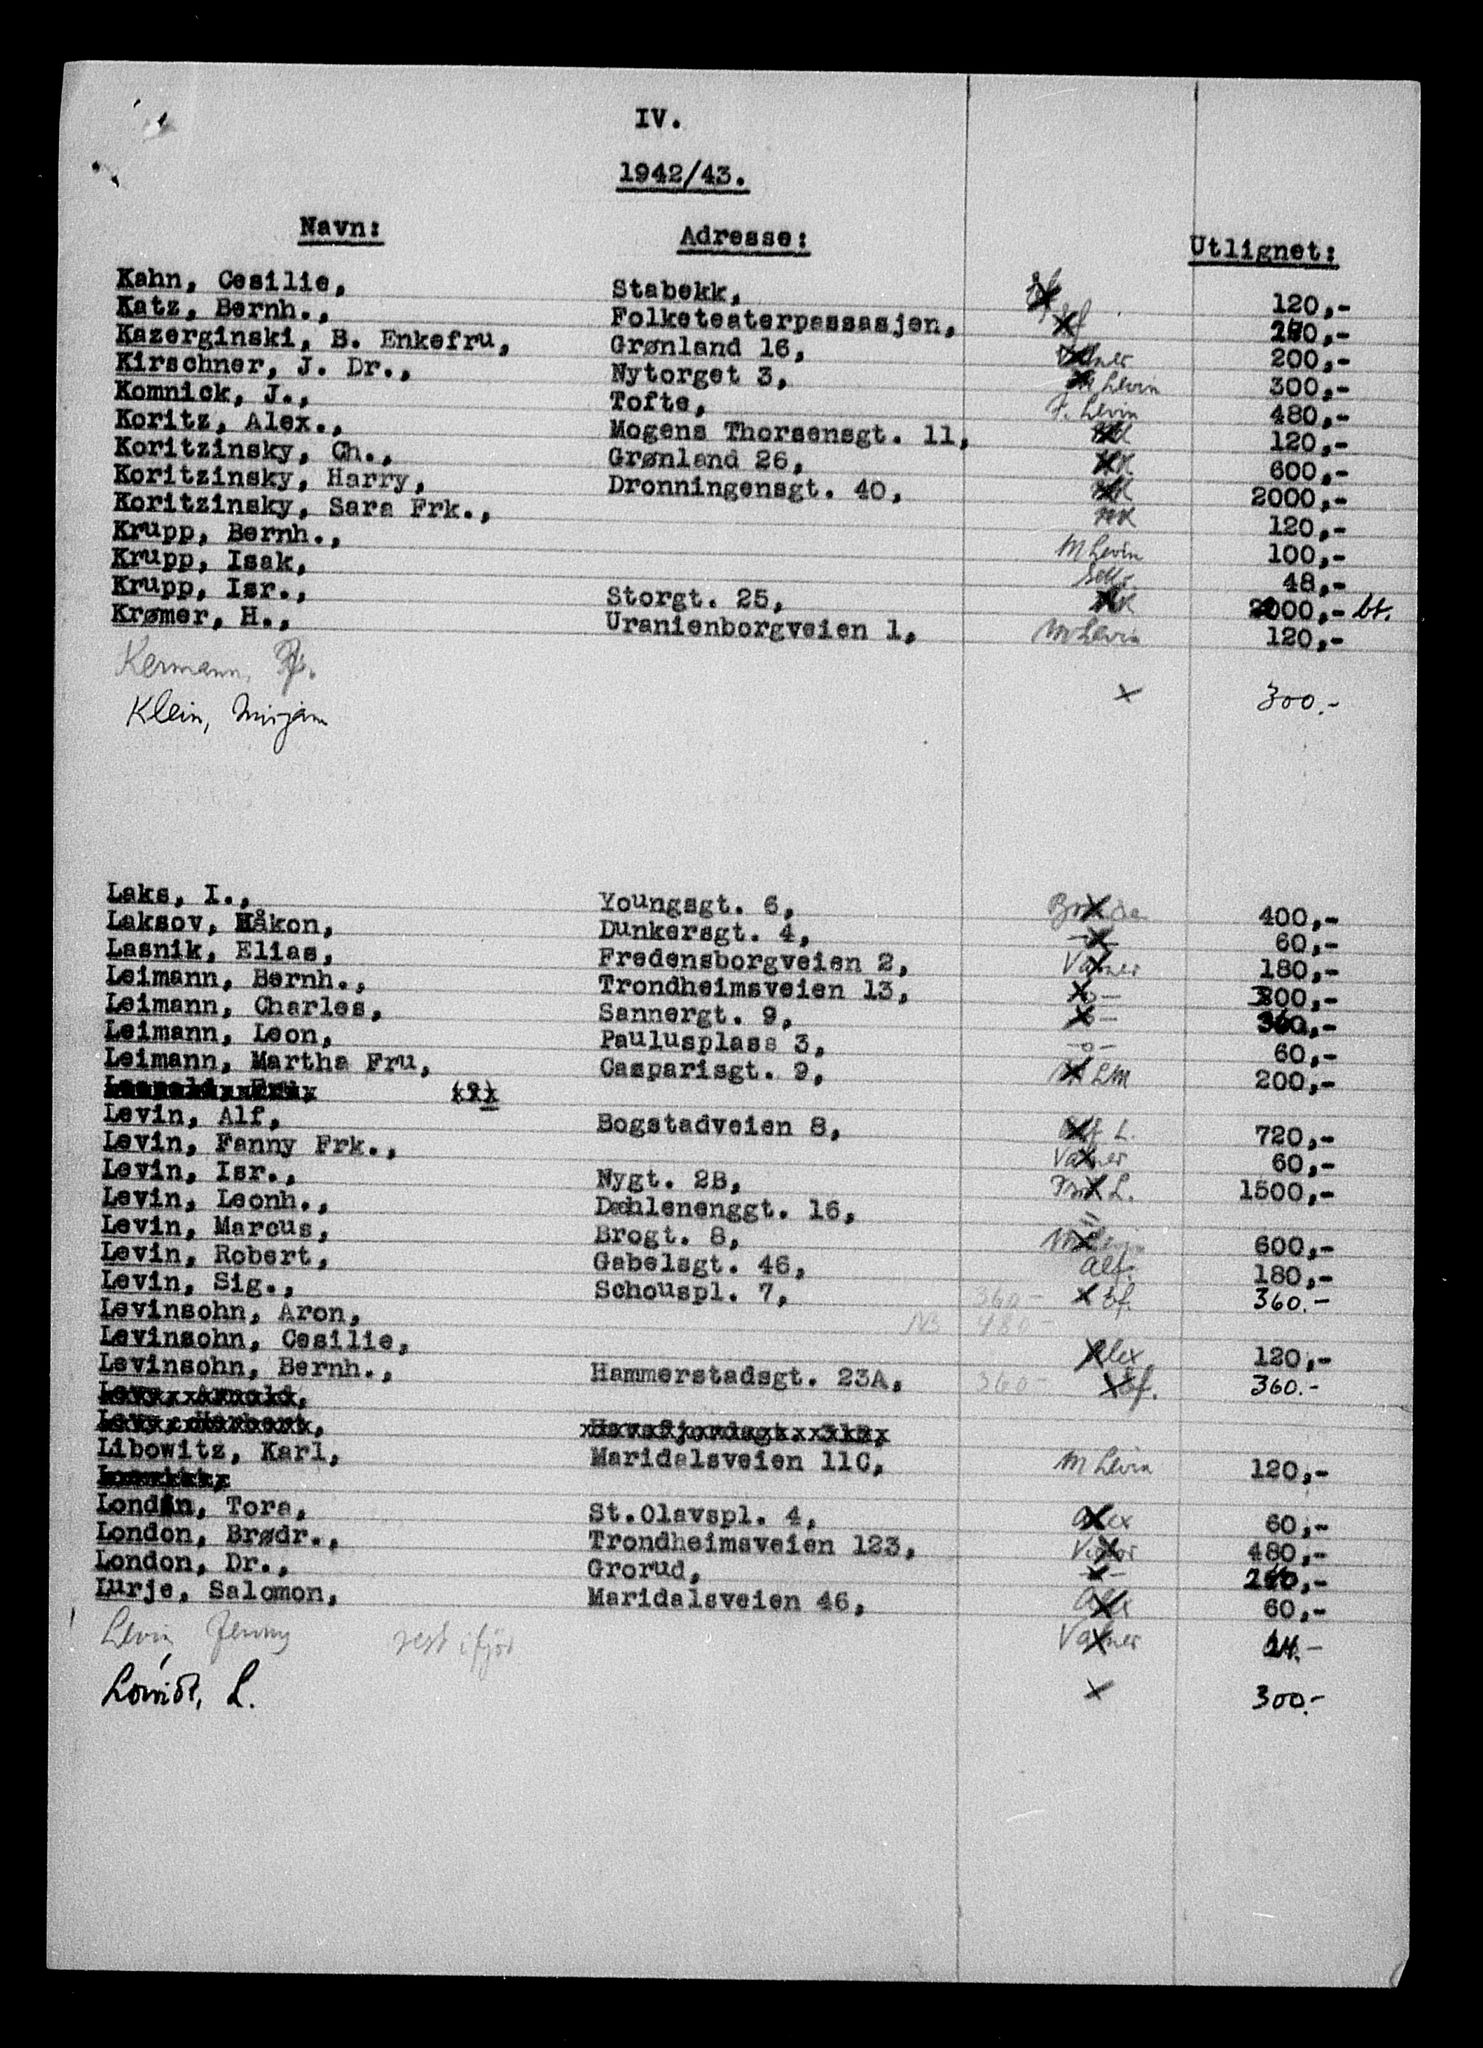 IV.
1942/43.
Navn: Adresse: Utlignet:
Kahn, Cesilie, Stabekk, 120,-
Katz, Bernh., Folketeaterpassasjen,
Kazerginski, B. Enkefru, Grønland 16, Vatner 200,-
Kirschner, J. Dr., Nytorget 3, M Levin 300,-
Komnick, J., Tofte, F. Levin 480,-
Koritz, Alex., Mogens Thorsensgt. 11, HK 120,-
Koritzinsky, Ch., Grønland 26, HK 600,-
Koritzinsky, Harry, Dronningensgt. 40, HK 2000,-
Koritzinsky, Sara Frk., HK 120,-
Krupp, Bernh., M Levin 100,-
Krupp, Isak, 48,-
Krupp, Isr., Storgt. 25, HK 2000,- bt.
Krømer, H., Uranienborgveien 1, M Levin 120,-
Kermann,
Klein, Mirjam x 300.-
Laks, I., Youngsgt. 6, 400,-
Laksov, Håkon, Dunkersgt. 4, 60,-
Lasnik, Elias, Fredensborgveien 2, Vatner 180,-
Leimann, Bernh., Trondheimsveien 13, -"- 300,-
Leimann, Charles, Sannergt. 9, -"- 360,-
Leimann, Leon, Paulusplass 3, -"- 60,-
Leimann, Martha Fru, Casparisgt. 9, LM 200,-
(?)
Levin, Alf, Bogstadveien 8, Alf L. 720,-
Levin, Fanny Frk., Vatner 60,-
Levin, Isr., Nygt. 2B, L. 1500,-
Levin, Leonh., Dæhlenenggt. 16, "
Levin, Marcus, Brogt. 8, M Levin 600,-
Levin, Robert, Gabelsgt. 46, Alf. 180,-
Levin, Sig., Schouspl. 7, 360- x 360.-
Levinsohn, Aron, NB 480-
Levinsohn, Cesilie, Alex 120,-
Levinsohn, Bernh., Hammerstadsgt. 23A, 360- x 360.-
Levy, Arnold,
Levy, Herbert, Havsfjordsgt.
Libowitz, Karl, Maridalsveien 11C, M Levin 120,-
London, Tora, St.Olavspl. 4, Alex 60,-
London, Brødr., Trondheimsveien 123, Victor 480,-
London, Dr., Grorud, -"-
Lurje, Salomon, Maridalsveien 46, 60,-
Levin, Jenny rest i fjor Vatner 24.-
L. x 300.-